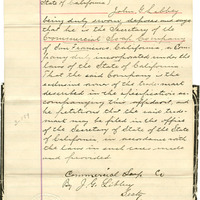 State of California)
John G Libbey
being duly sworn, deposes and says
that he is the Secretary of the
Commercial Soap Company
of San Francisco California, a Com-
pany duly incorporated under the
laws of the State of California
That the said Company is the
owner of the trademark
described in the specification
accompanying this affidavit, and
he petitions that the said trade-
mark may be filed in the office
of the Secretary of State of the State
of California, in accordance with
the laws in such cases made
and provided
Commercial Soap Co
By J. G. Libbey
Secty